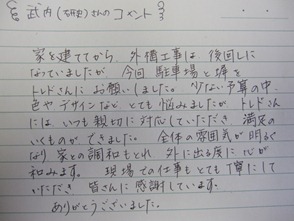 武内(研史)さんのコメント
家を建ててから、外構工事は後回しに
なっていましたが 今回 駐車場と塀を
トレドさんに お願いしました。少ない予算の中、
色やデザインなど、とても悩みましたが トレドさん
には いつも親切に対応していただき 満足の
いくものができました。全体の雰囲気が明るく
なり 家との調和もとれ 外に出る度に 心が
和みます。 現場での仕事もとても丁寧にして
いただき 皆さんに感謝しています。
ありがとうございました。